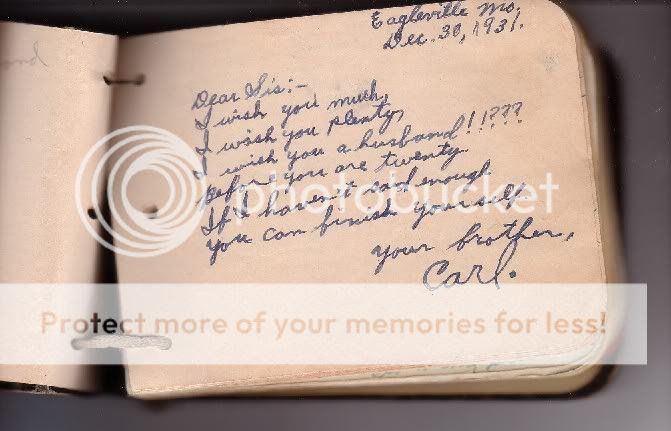 Eagleville Mo.
Dec. 30, 1931.
Dear Sis:-
I wish you much,
I wish you plenty,
I wish you a husband!!???
Before you are twenty.
If I haven't said enough
you can finish yourself
your brother,
Carl.
photobucket
Protect more of your memories for less!